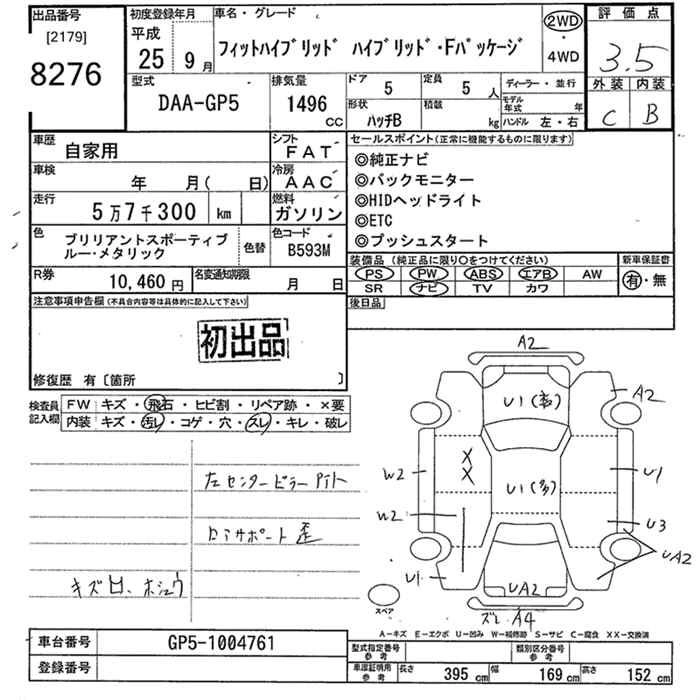 出品番号
[2179]
8276
初度登録年月
平成
25年 9月
車名・グレード
フィットハイブリッド ハイブリッド・Fパッケージ
2WD
・
4WD
評価点
3.5
外装 内装
C B
型式
DAA-GP5
排気量
1496
CC
ドア
5
定員
5人
形状
ハッチB
積載
kg
ディーラー・並行
モデル年式 年
ハンドル 左・右
車歴
自家用
シフト
FAT
車検
年 月( 日)
冷房
AAC
走行
5万7千300 km
燃料
ガソリン
色
ブリリアントスポーティブ
ルー・メタリック
色替
色コード
B593M
R券
10,460円
名変通知期限
月 日
セールスポイント(正常に機能するものに限ります)
◎純正ナビ
◎バックモニター
◎HIDヘッドライト
◎ETC
◎プッシュスタート
装備品(純正品に限り○をつけてください)
新車保証書
PS PW ABS エアB AW
SR ナビ TV カワ
有・無
後日品
注意事項申告欄(不具合内容等は具体的に記入して下さい)
初出品
修復歴 有〔箇所 〕
検査員
記入欄
FW キズ・飛石・ヒビ割・リペア跡・×要
内装 キズ・汚レ・コゲ・穴・スレ・キレ・破レ
左センターピラー
サポート歪
キズ凹、ホシュウ
A2
A2
U1(多)
X
X
W2
U1(多)
U1
W2
U3
UA2
U1
UA2
スレ A4
スペア
A-キズ E-エクボ U-凹み W-補修跡 S-サビ C-腐食 XX-交換済
車台番号
GP5-1004761
登録番号
型式指定番号
参考
類別区分番号
参考
車庫証明用
参考
長さ 395 cm
幅 169 cm
高さ 152 cm